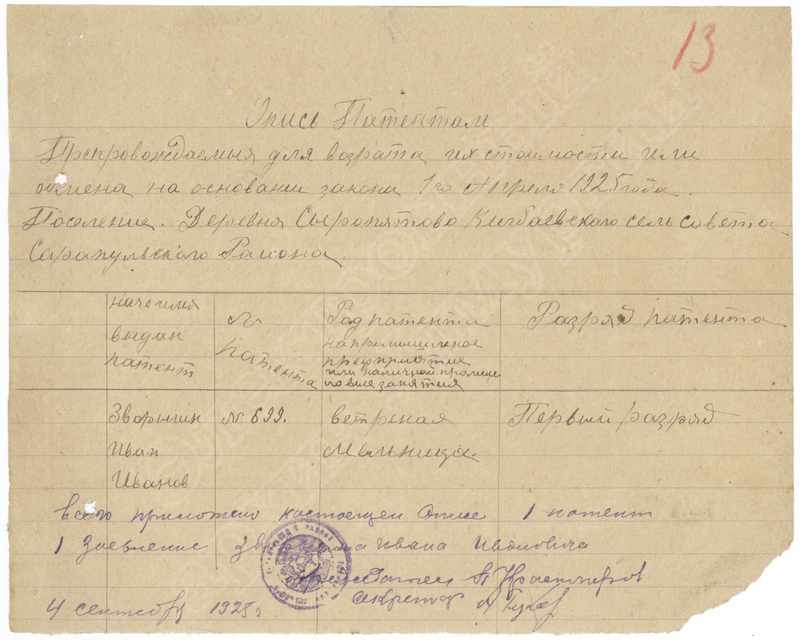 13
Опись Патентам
Препровождаемыя для возрата их стоимости или
обмена на основании закона 1го Апреля 1925 года.
Поселение. Деревня Сыропятово Кигбаевского сельсовета
Сарапульского Района.
на чье имя выдан патент
№ патента
Род патента на промышленое
предприятие
или личной промысловые занятия
Разряд патента
Зворыгин Иван Иванов
№ 699.
ветреная мельница
Первый разряд
всего приложено настоещей описе 1 патент
1 Заевление Ивана Ивановича
Секретар
4 сентебр 1925 г